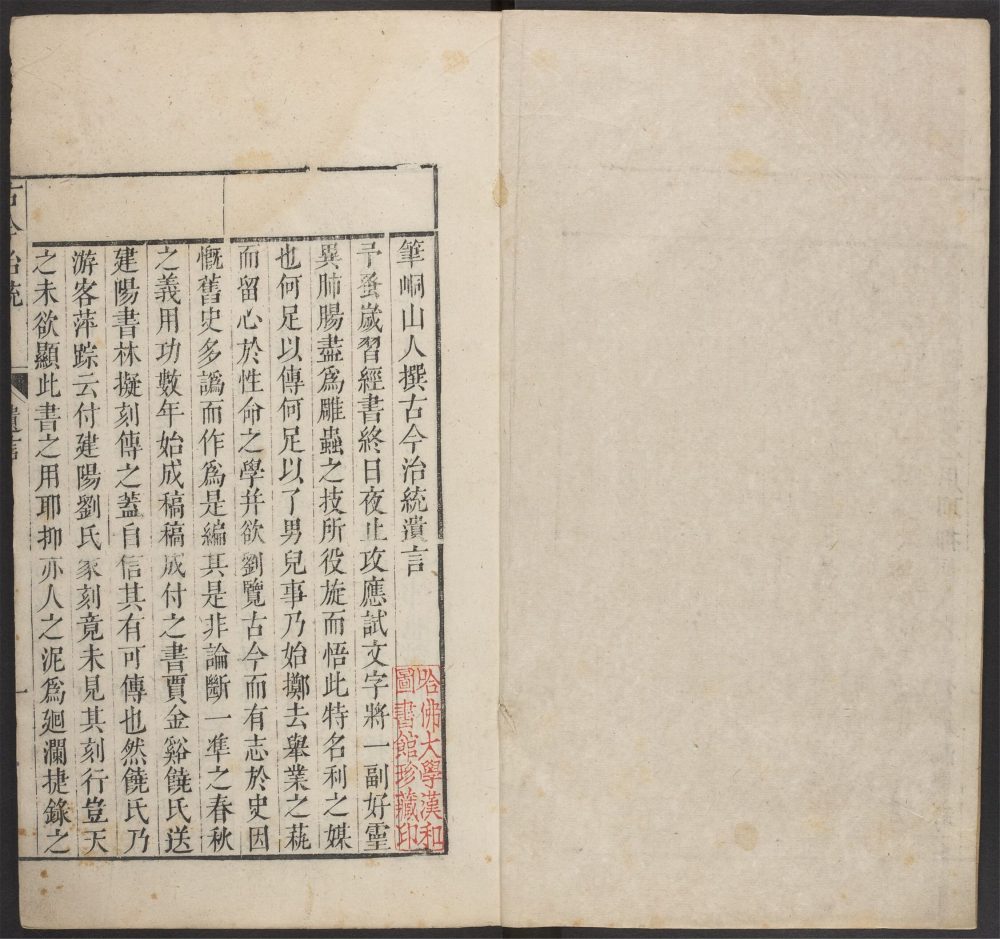 筆峒山人撰古今治統遺言
予蚤歲習經書終日夜止攻應試文字將一副好靈
異肺腸盡為雕蟲之技所役旋而悟此特名利之媒
也何足以傳何足以了男兒事乃始擲去舉業之蓻
而留心於性命之學并欲劉覽古今而有志於史因
慨舊史多譌而作為是編其是非論斷一準之春秋
之義用功數年始成稿稿成付之書賈金谿饒氏送
建陽書林擬刻傳之蓋自信其有可傳也然饒氏乃
游客萍踪云付建陽劉氏家刻竟未見其刻行豈天
之未欲顯此書之用耶抑亦人之泥為廻瀾捷錄之
古今治統
遺言
一
哈佛大學漢和
圖書館珍藏印